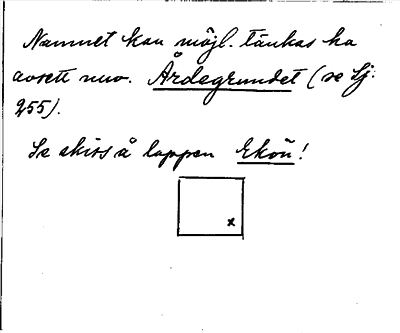 Namnet kan möjl. tänkas ha
avsett nuv. Årdsgrundet (se Lj.
255).
Se skiss å lappen Ekön!
x